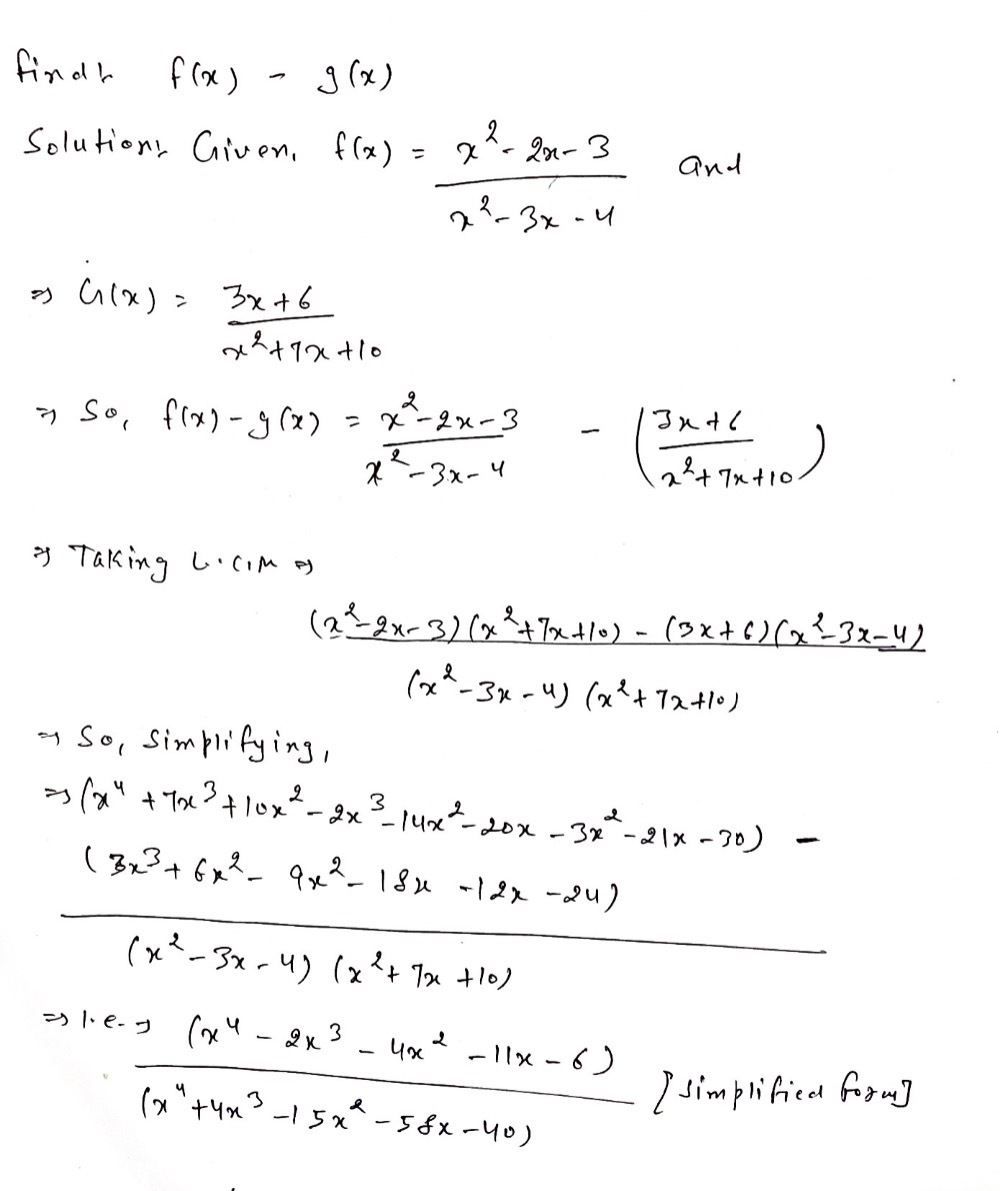 find:- f(x) - g(x)
Solution:- Given, f(x) = x²-2x-3 / x²-3x-4 and
⇒ G(x) = 3x+6 / x²+7x+10
⇒ So, f(x)-g(x) = x²-2x-3 / x²-3x-4 - (3x+6 / x²+7x+10)
⇒ Taking L.C.M ⇒
(x²-2x-3)(x²+7x+10) - (3x+6)(x²-3x-4)
(x²-3x-4) (x²+7x+10)
⇒ So, Simplifying,
⇒ (x⁴+7x³+10x²-2x³-14x²-20x-3x²-21x-30) -
(3x³+6x²-9x²-18x-12x-24)
(x²-3x-4) (x²+7x+10)
⇒ i.e. ⇒ (x⁴-2x³-4x²-11x-6)
(x⁴+4x³-15x²-58x-40) [simplified form]